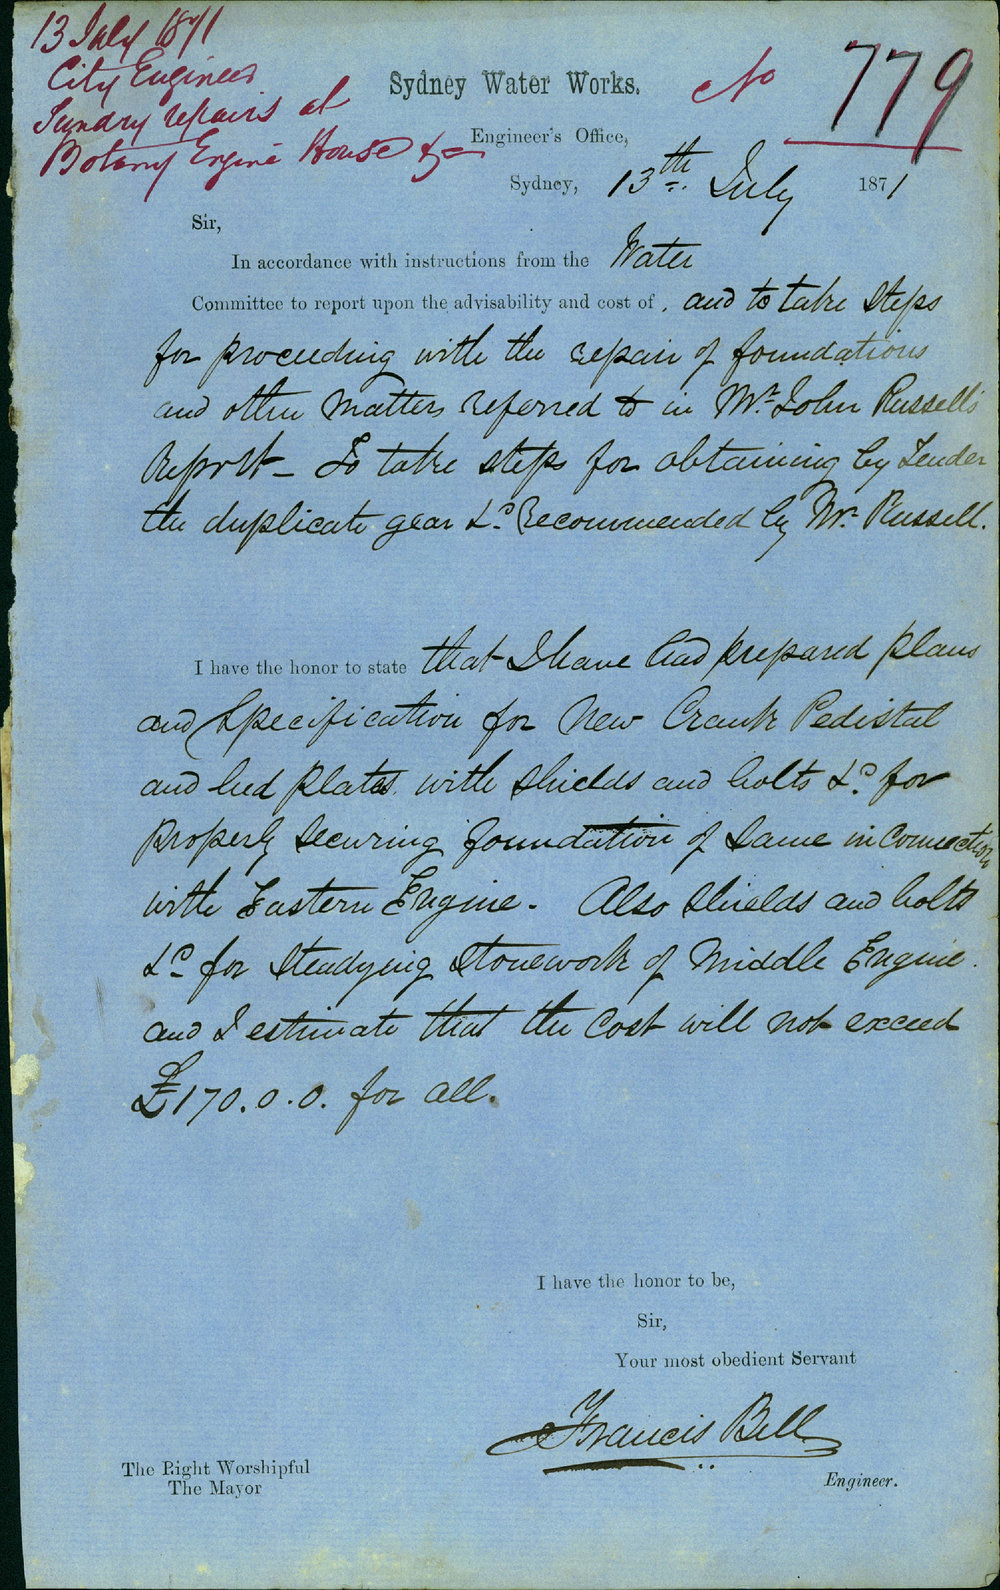 13 July 1871
City Engineer
Sundry repairs at
Botany Engine House &c
No 779
Sydney Water Works.
Engineer's Office,
Sydney, 13th July 1871
Sir,
In accordance with instructions from the Water
Committee to report upon the advisability and cost of, and to take steps
for proceeding with the repair of foundations
and other matters referred to in Mr. John Russell's
Report - To take steps for obtaining by Tender
the duplicate gear &c. Recommended by Mr. Russell.
I have the honor to state that I have had prepared plans
and Specification for New Crank Pedistal
and bed plates with shields and bolts &c. for
properly securing foundation of same in Connection
with Eastern Engine - Also shields and bolts
&c. for steadying stonework of Middle Engine.
and I estimate that the Cost will not exceed
£170.0.0. for all.
I have the honor to be,
Sir,
Your most obedient Servant
Francis Bell
Engineer.
The Right Worshipful
The Mayor